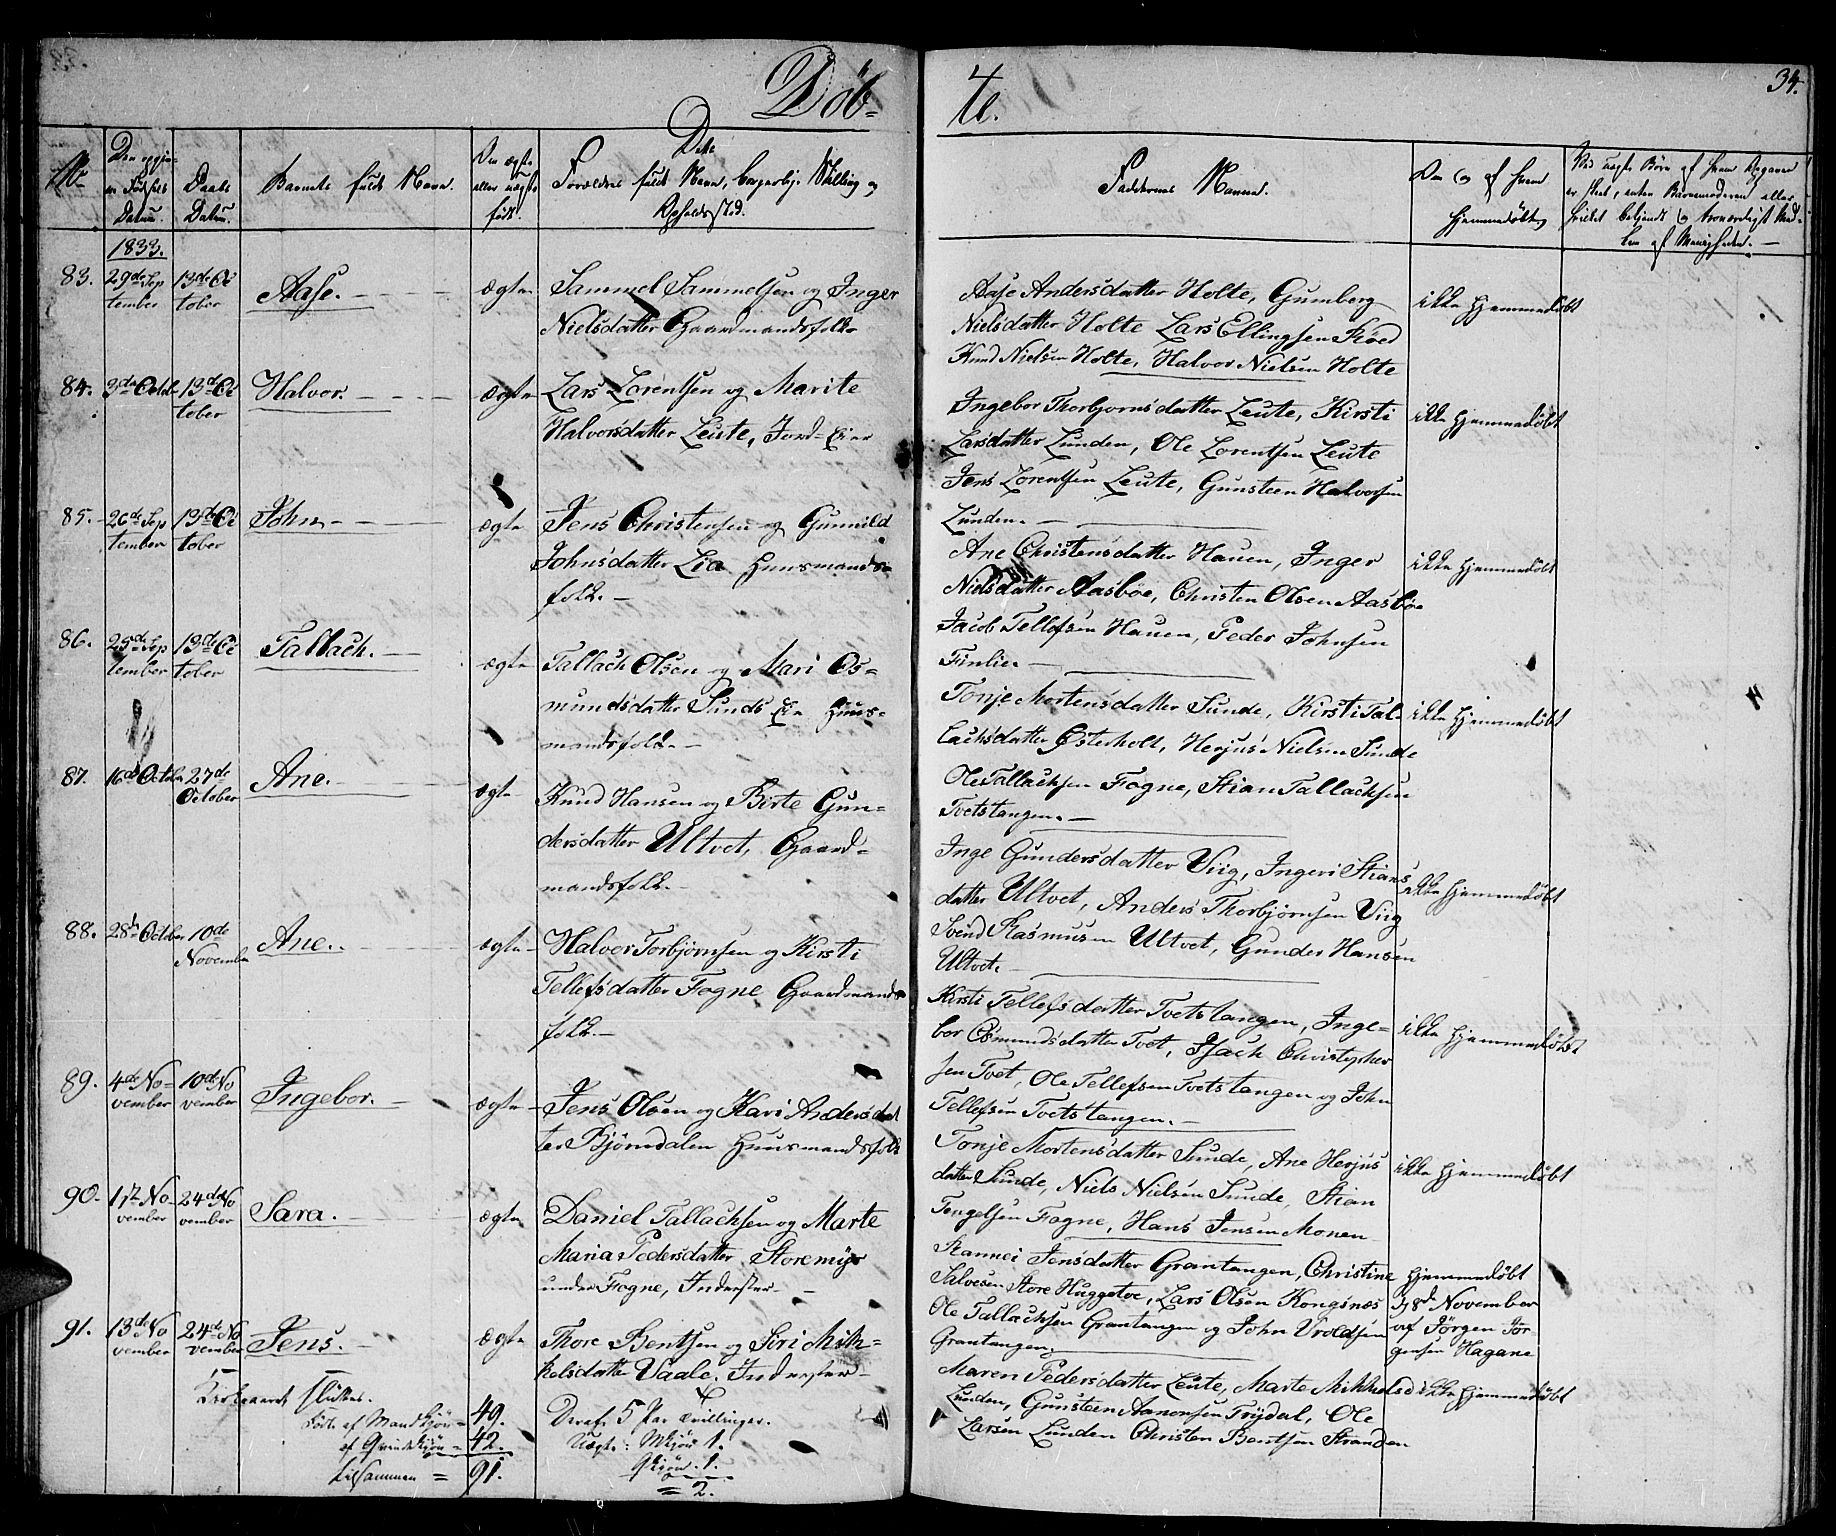 Döb-
te.
34.
No
Datum.
Daabs
Datum.
Barnets fulde Navn.
Om ægte
eller uægte
født.
Dets
Forældres fulde Navn, borgerlige Stilling og
Opholdssted.
Faddernes Navne.
Om og af hvem
hjemmedøbt
1833.
83. 29de Sep
tember
13de Oc
tober
Aase.
ægte
Sammel Sammelsen og Inger
Nielsdatter Gaardmandsfolk
Aase Andersdatter Holte, Gumberg
Nielsdatter Holte Lars Ellingsen Röed
Knud Nielsen Holte, Halvor Nielsen Holte
ikke hjemmedøbt
84. 3de Octob
13de Oc
tober
Halvor.
ægte
Lars Lorentsen og Marite
Halvorsdatter Leute, Jord-Eier
Ingebor Thorbjornsdatter Leute, Kirsti
Larsdatter Lunden, Ole Lorentsen Leute
Jens Lorentsen Leute, Gunsteen Halvorsen
Lunden.
ikke hjemmedøbt
85. 26de Sep
tember
13de Oc
tober
John
ægte
Jens Christensen og Gunnild
Johnsdatter Lia Huusmands-
folk.
Ane Christensdatter Hauen, Inger
Nielsdatter Aasböe, Christen Olsen Aasböe
Jacob Tellefsen Hauen, Peder Johnsen
Finlie.
ikke hjemmedøbt
86. 25de Sep
tember
13de Oc
tober
Tallach.
ægte
Tallach Olsen og Mari Os-
mundsdatter Sunds Eie Huus-
mandsfolk.
Tonje Mortensdatter Sunde, Kirsti Tal-
lachsdatter Österholt, Herjus Nielsen Sunde
Ole Tallachsen Fogne, Stian Tallachsen
Tvetstangen.
ikke hjemmedøbt
87. 16de October
27de
October
Ane.
ægte
Knud Hansen og Berte Gun-
dersdatter Ultvet, Gaard-
mandsfolk.
Inge Gundersdatter Viig, Ingeri Stians
datter Ultvet, Anders Thorbjørnsen Viig
Svend Rasmusen Ultvet, Gunder Hansen
Ultvet.
ikke hjemmedøbt
88. 28de October
10de
Novembe
Ane.
ægte
Halvor Torbjørnsen og Kirsti
Tellefsdatter Fogne Gaardmands
folk.
Kirsti Tellefsdatter Tvetstangen, Inge-
bor Osmundsdatter Tvet, Isach Christopher
sen Tvet, Ole Tellefsen Tvetstangen og John
Tellefsen Tvetstangen.
ikke hjemmedøbt
89. 4de No-
vember
10de No
vember
Ingebor.
ægte
Jens Olsen og Kari Andersdat
ter Bjørndalen Huusmandsfolk
Tonje Mortensdatter Sunde, Ane Herjus
datter Sunde, Niels Nielsen Sunde, Stian
Tengelsen Fogne, Hans Jensen Monen
ikke hjemmedøbt
90. No-
vember
24de No
vember
Sara.
ægte
Daniel Tallachsen og Marte
Maria Pedersdatter Storemyr
under Fogne, Inderster
Rannei Jensdatter Grantangen, Christine
Salvesen Store Huggetoe, Lars Olsen Kongsnæs
Ole Tallachsen Grantangen og John Vroldsen
Grantangen
hjemmedøbt
18de November
af Jörgen Jör-
gensen Hagane
91. 13de No
vember
24de No
vember
Jens.
ægte
Thore Bentsen og Siri Mik-
kelsdatter Vaale. Inderster
Maren Pedersdatter Leute, Marte Mikkelsd
Lunden, Gunsteen Aanonsen Trydal, Ole
Larsen Lunden Christen Bentsen Stranden
ikke hjemmedøbt
Kirkeaaret sluttes.
Födte af Mandkjön = 49.
af Qvindekjön = 42.
tilsammen = 91.
Deraf 5 Par tvillinger.
Uægte: Mkjön 1.
Qkjön. 1.
= 2.